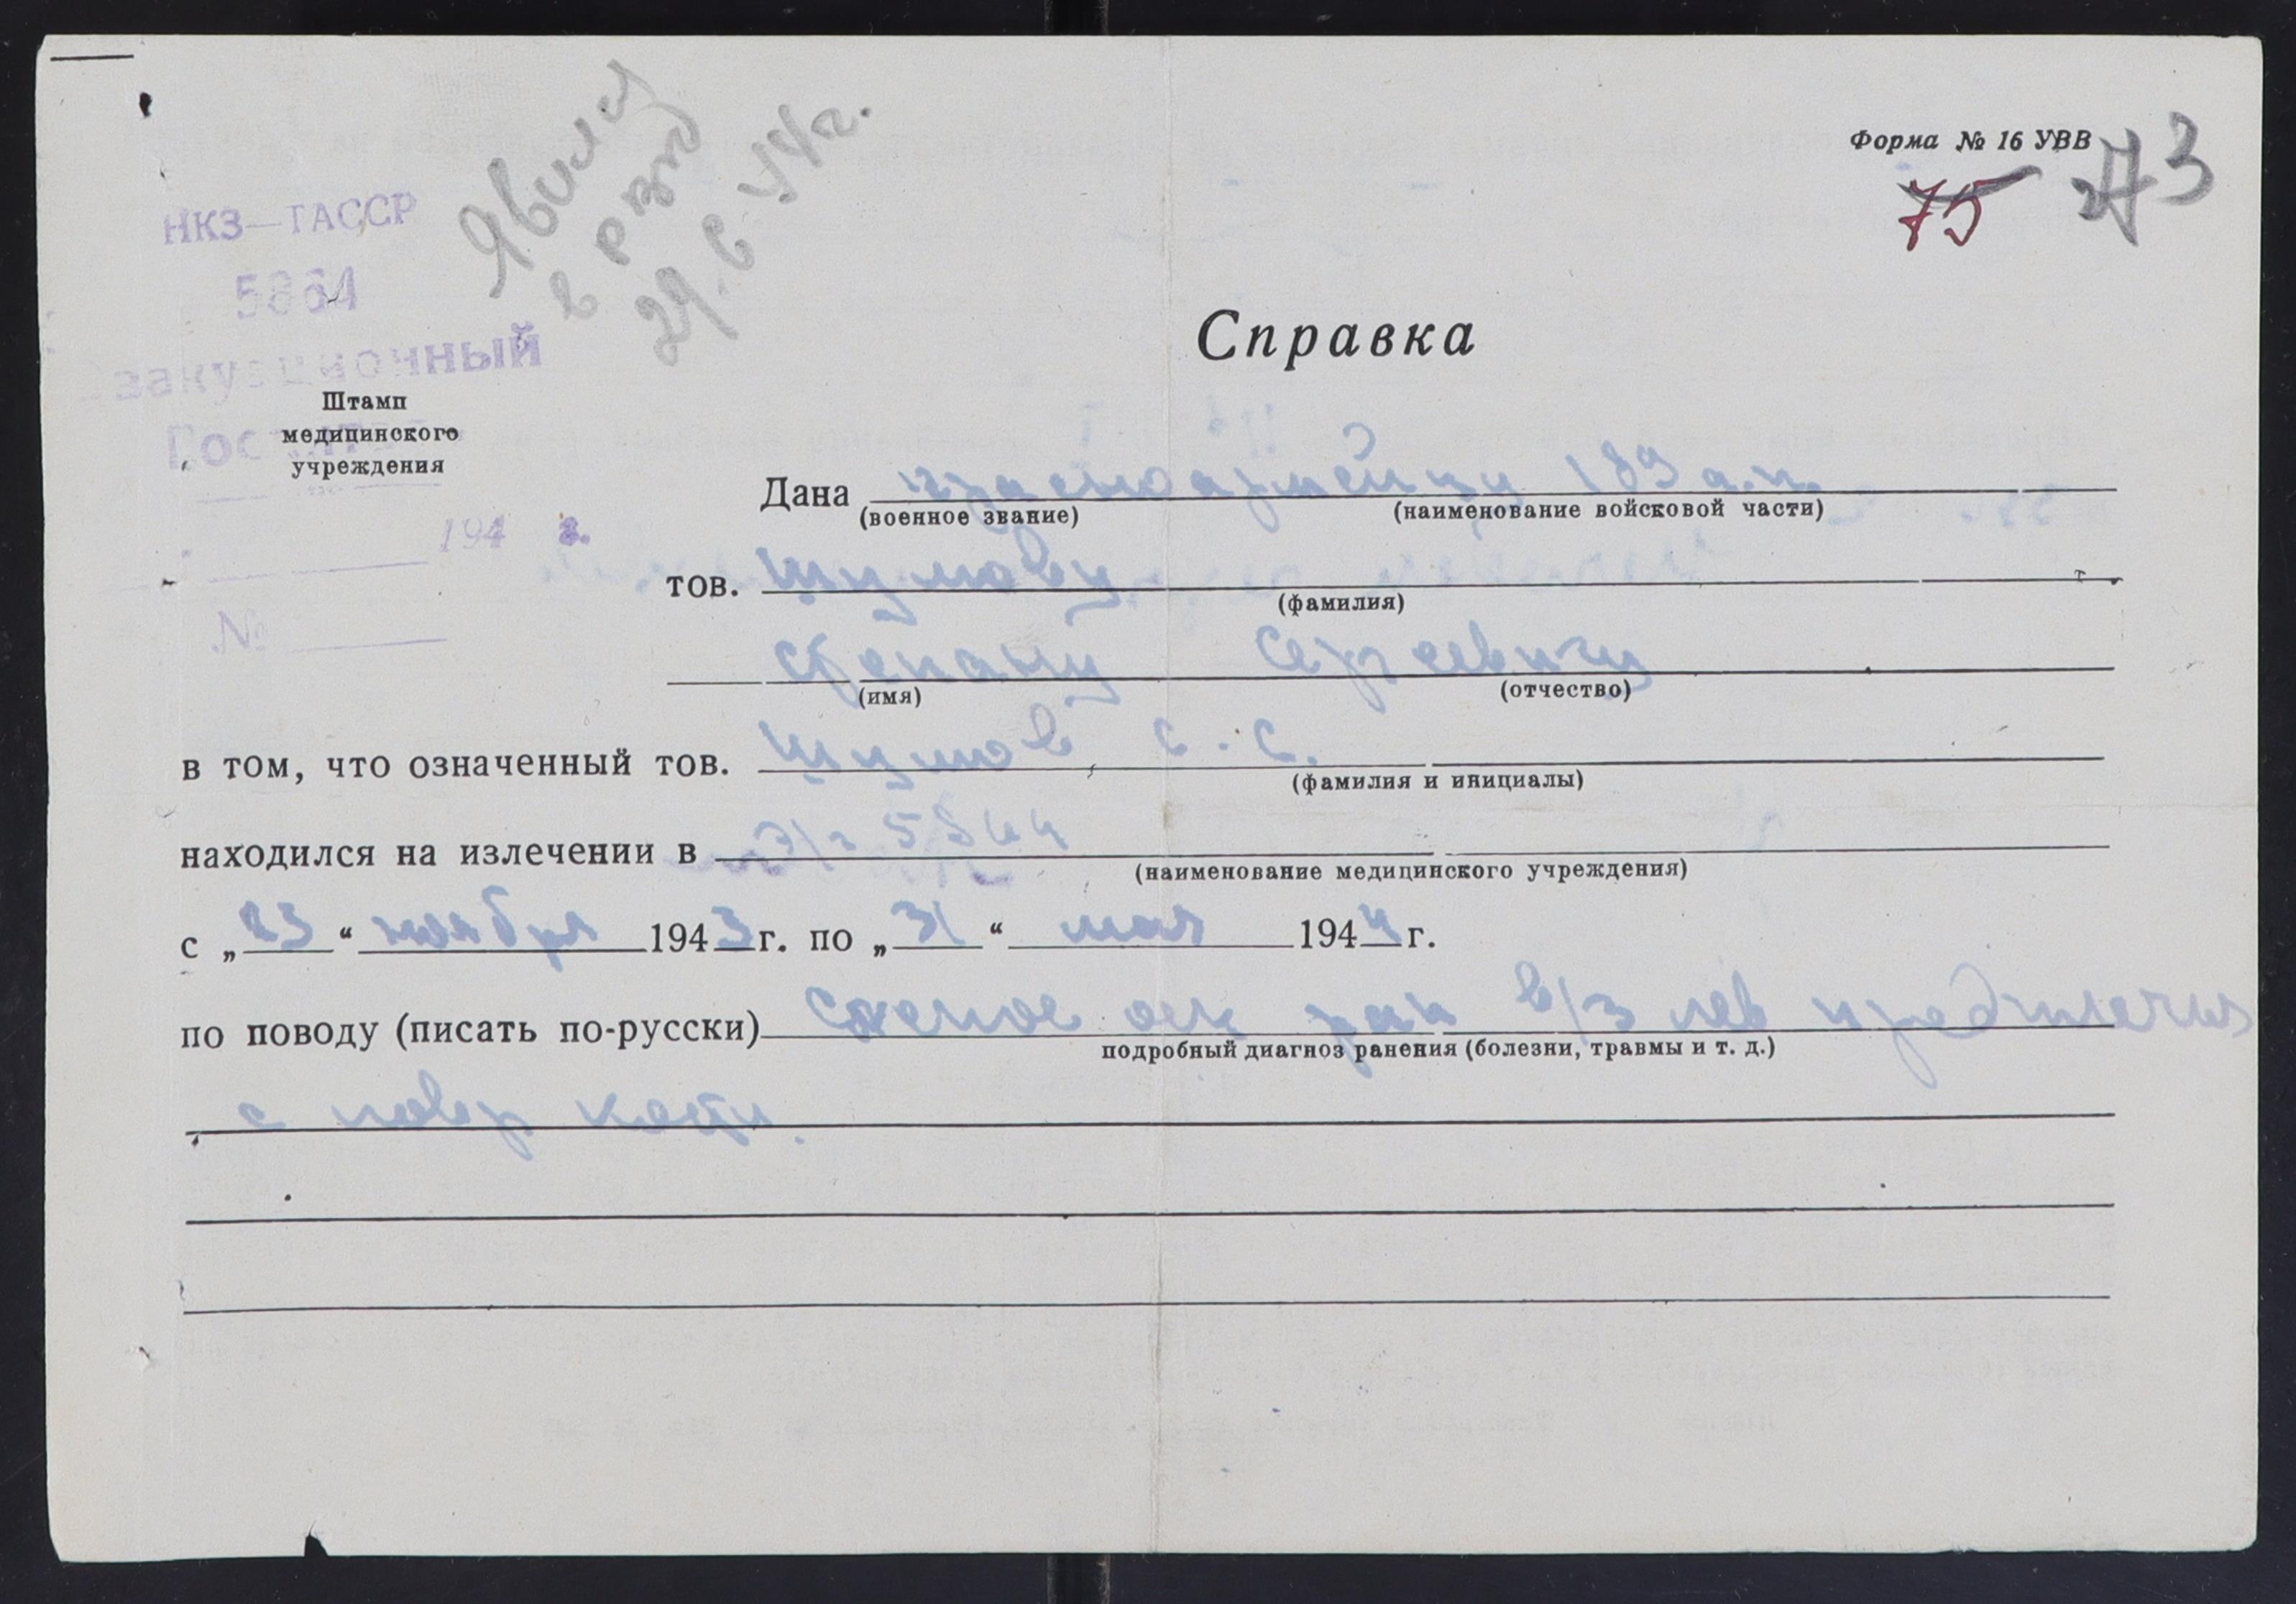 Форма № 16 УВВ
75 73
Явился
в РВК
29.6 44г.
НКЗ—ТАССР
5864
Эвакуационный
Госпиталь
194 г.
№
Штамп
медицинского
учреждения
Справка
Дана красноармейцу 189 а.п.
(военное звание) (наименование войсковой части)
тов. Шумову
(фамилия)
Степану Сергеевичу
(имя) (отчество)
в том, что означенный тов. Шумов С.С.
(фамилия и инициалы)
находился на излечении в э/г 5864
(наименование медицинского учреждения)
с „23“ ноября 1943 г. по „31“ мая 1944 г.
по поводу (писать по-русски) оск ран в/з лев предплечья
подробный диагноз ранения (болезни, травмы и т. д.)
с повр кости.